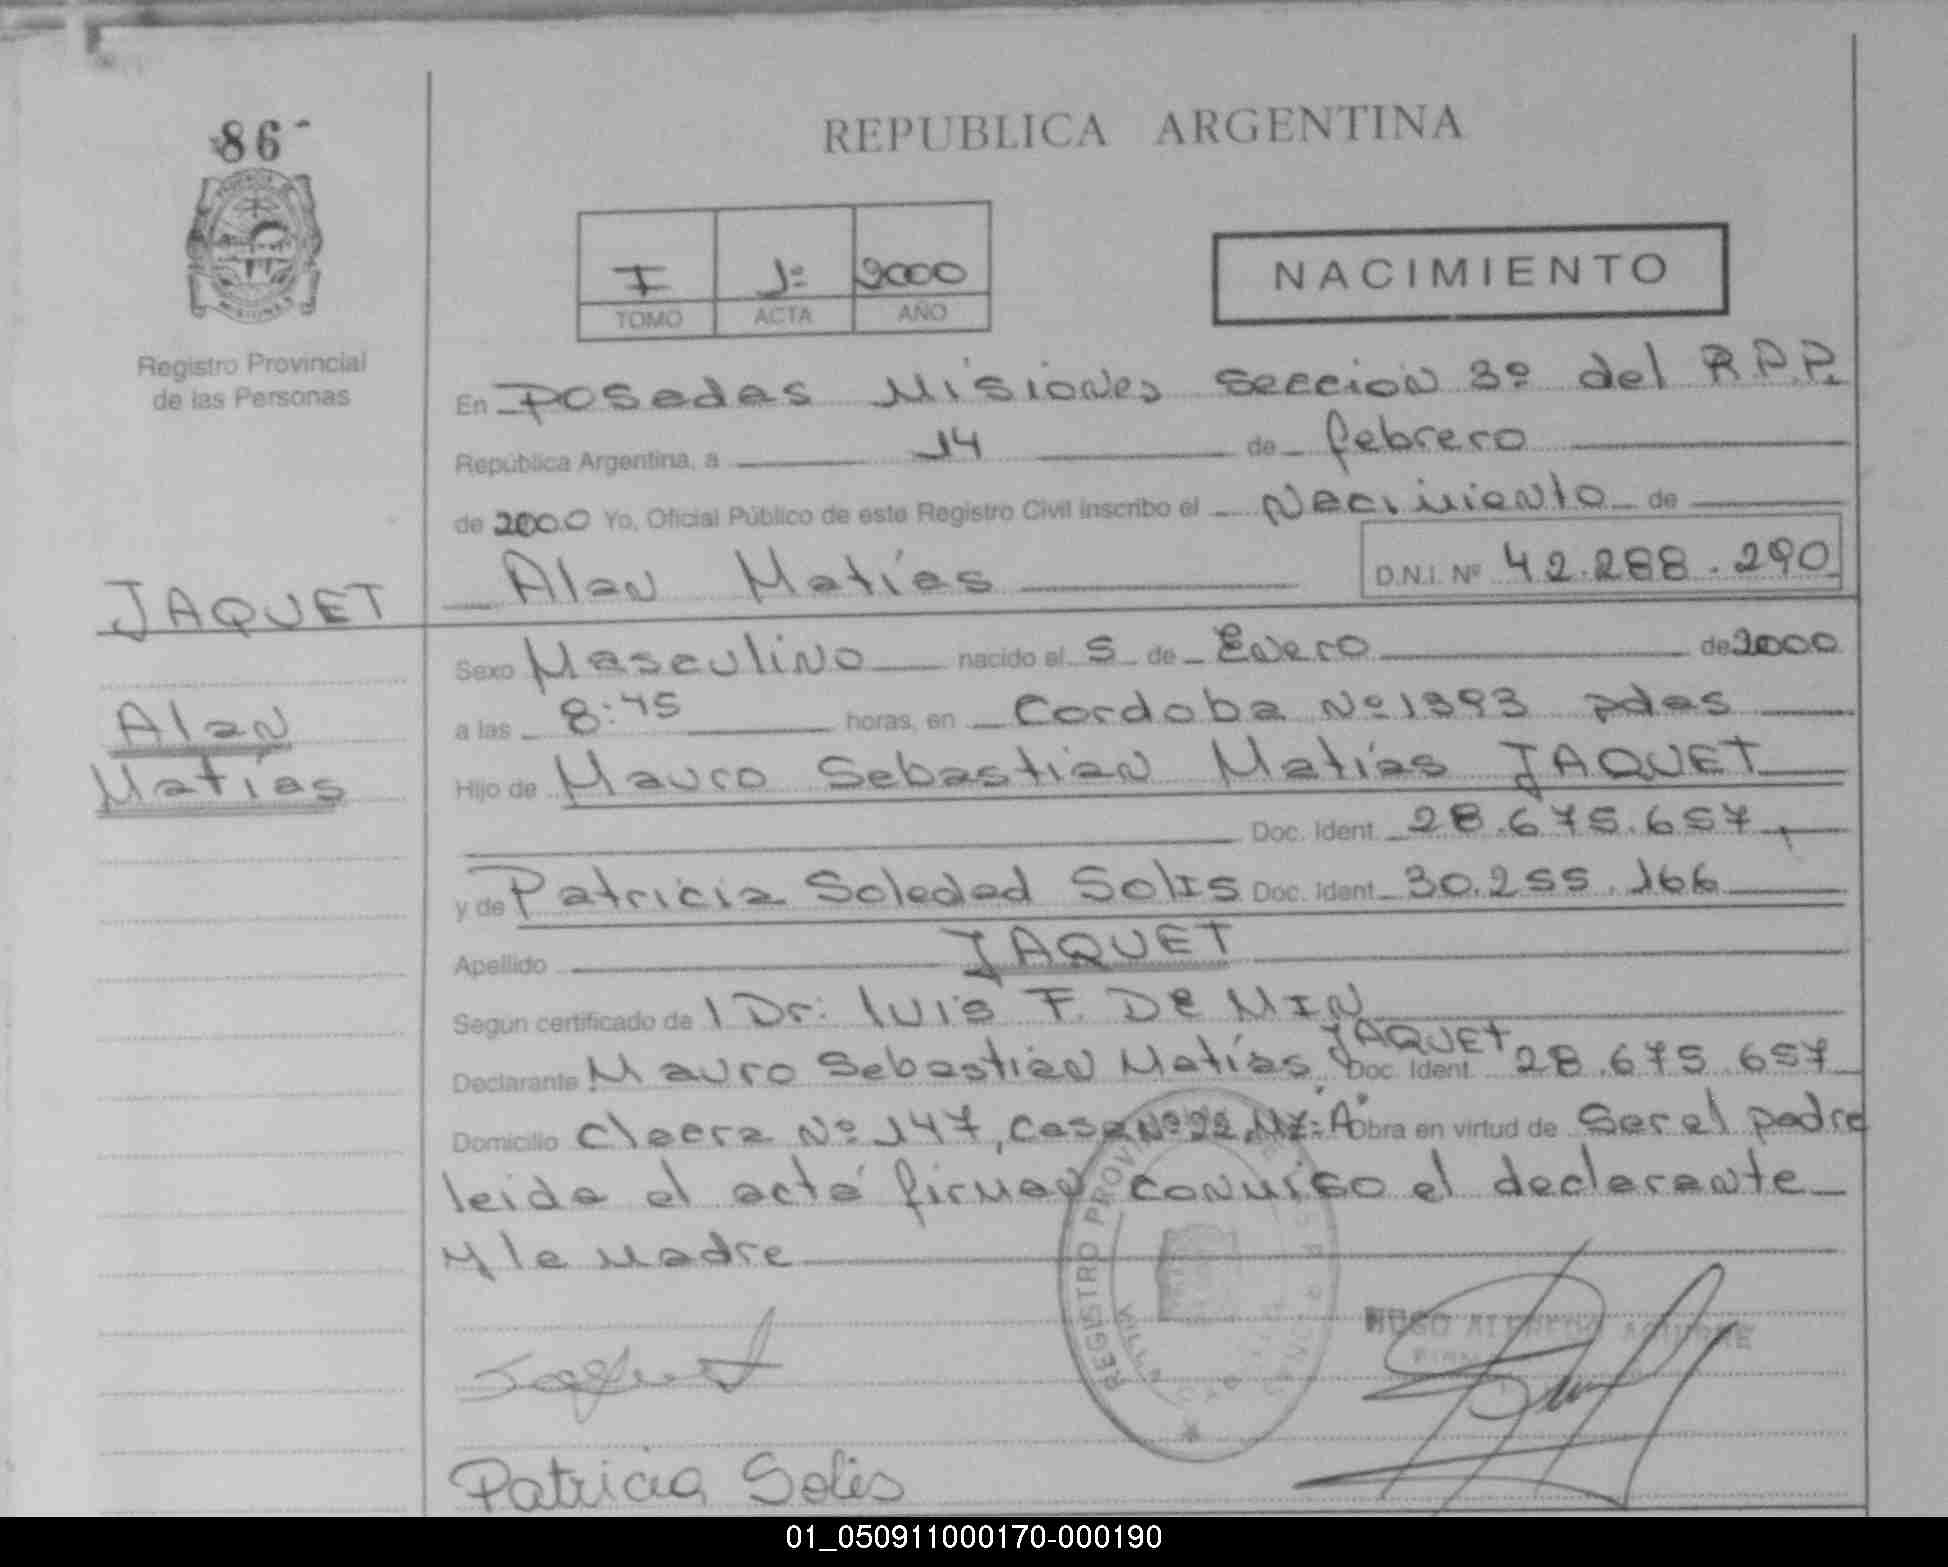 86
REPUBLICA ARGENTINA
I 1º 2000
TOMO ACTA AÑO
NACIMIENTO
Registro Provincial
de las Personas
En Posadas Misiones Sección 3º del R.P.P.
República Argentina, a 14 de febrero
de 2000 Yo, Oficial Público de este Registro Civil inscribo el Nacimiento de
Alan Matías D.N.I. Nº 42.288.290
JAQUET
Alan
Matías
Sexo Masculino nacido el 5 de Enero de 2000
a las 8:45 horas, en Cordoba Nº 1393 pdas
Hijo de Mauro Sebastián Matías JAQUET
Doc. Ident. 28.675.657
y de Patricia Soledad Solis Doc. Ident. 30.255.166
Apellido JAQUET
Según certificado de l Dr: luis F. De MIN
Declarante Mauro Sebastián Matías JAQUET Doc. Ident. 28.675.657
Domicilio Claera Nº 147, Casa Nº 22, Mz: "A" Obra en virtud de Ser el padre
leida el acta firman conmigo el declarante
y la madre
REGISTRO
Jaquet
Patricia Solis
01_050911000170-000190